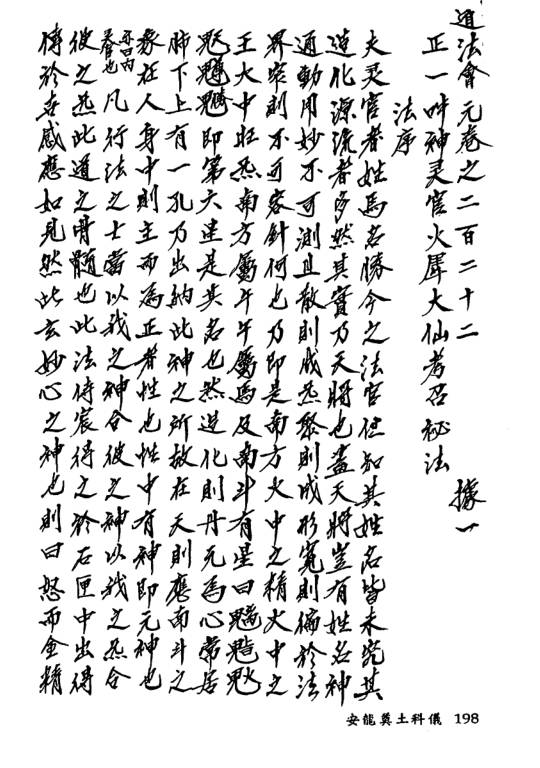 道法會元卷之二百二十二
正一吽神灵官火犀大仙考召祕法 據一
法序
夫灵官者姓馬名勝今之法官但知其姓名皆未究其
造化源流者多然其實乃天將也蓋天將豈有姓名神
通動用妙不可測且散則成炁聚則成形寬則徧於法
界窄則不可容針何也乃即是南方火中之精火中之
王大中旺炁南方屬午午屬馬及南斗有星曰魁
即第六 是其名也然造化則丹元為心常居
肺下上有一孔乃出納此神之所故在天則應南斗之
象在人身中則主而為正者性也性中有神即元神也
亦曰内 也凡行法之士當以我之神合彼之神以我之炁合
彼之炁此道之骨髓也此法侍宸得之於石匣中出得
傳於吾感應如見然此玄妙心之神也則曰怒而金精
安龍奠土科儀 198